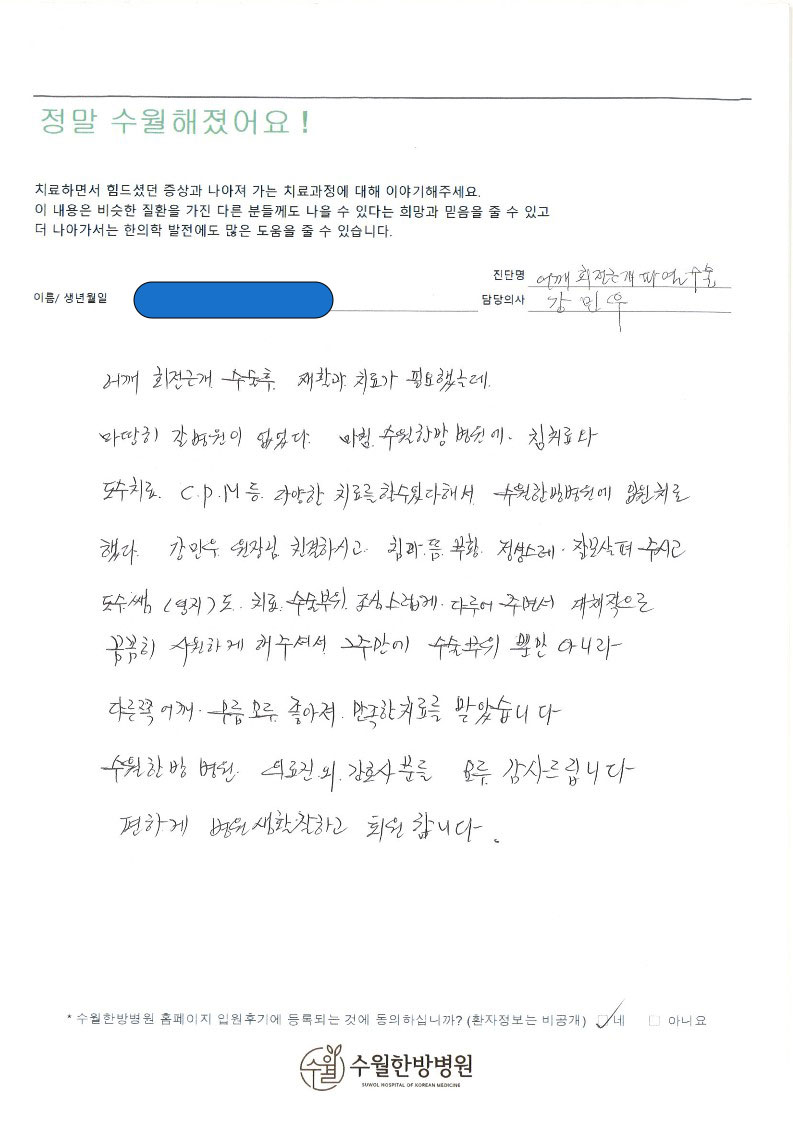 정말 수월해졌어요!
치료하면서 힘드셨던 증상과 나아져 가는 치료과정에 대해 이야기해주세요.
이 내용은 비슷한 질환을 가진 다른 분들께도 나을 수 있다는 희망과 믿음을 줄 수 있고
더 나아가서는 한의학 발전에도 많은 도움을 줄 수 있습니다.
진단명 어깨 회전근개 파열 수술
이름/ 생년월일 담당의사 강민우
어깨 회전근개 수술후 재활과 치료가 필요했는데
마땅히 갈병원이 없었다. 마침 수월한방병원에. 침치료와
도수치료. C.P.M 등. 다양한 치료를 할수있다해서 수월한방병원에 입원치료
했다. 강민우 원장님 친절하시고. 침과.뜸.부황. 정성스레. 잘보살펴 주시고
도수쌤 (연지)도. 치료. 수술부위. 조심스럽게. 다루어 주면서 대체적으로
꼼꼼히 시원하게 해주셔서 2주만에 수술부위 뿐만 아니라
다른쪽어깨. 무릎 모두 좋아져. 만족한치료를 받았습니다
수월한방병원. 의료진.외. 간호사분들 모두. 감사드립니다
편하게 병원생활 잘하고 퇴원합니다.
* 수월한방병원 홈페이지 입원후기에 등록되는 것에 동의하십니까? (환자정보는 비공개) ☑네 □ 아니요
수월 수월한방병원
SUWOL HOSPITAL OF KOREAN MEDICINE